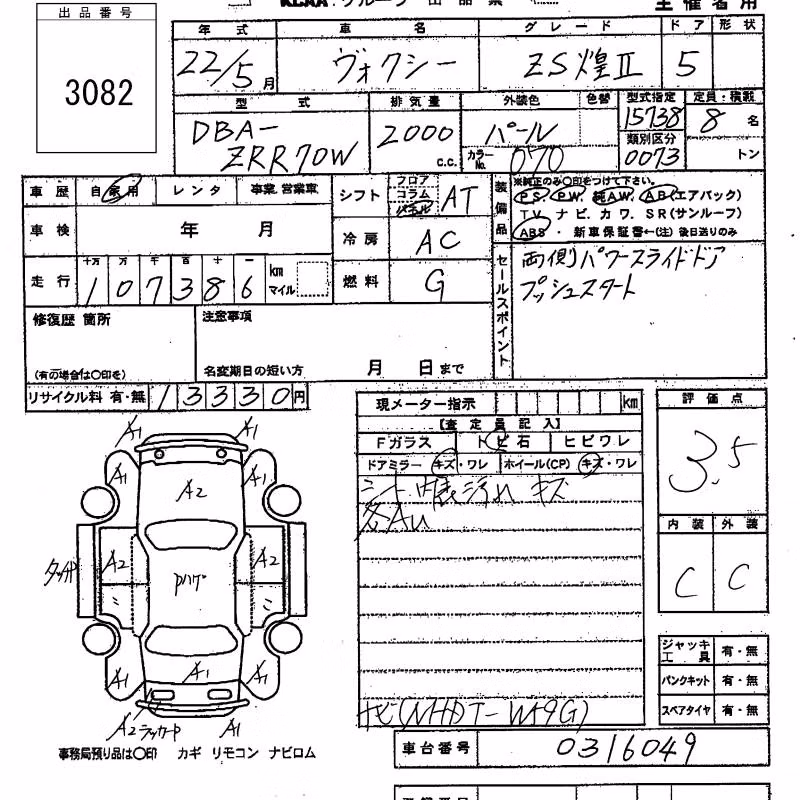 出品番号
3082
主催者用
年式 車名 グレード ドア 形状
22/5月 ヴォクシー ZS煌II 5
型式 排気量 外装色 色替 型式指定 定員・積載
DBA-
ZRR70W
2000 c.c.
パール
カラーNo. 070
15738
類別区分
0073
8 名
トン
車歴 自家用 レンタ 事業・営業車
車検 年 月
走行 十万 万 千 百 十 一
107386 km マイル
シフト フロア コラム パネル AT
冷房 AC
燃料 G
装備品
※純正のみ〇印をつけて下さい。
PS. PW. 純AW. AB(エアバック)
TV. ナビ. カワ. SR(サンルーフ)
ABS・新車保証書←(注)後日送りのみ
セールスポイント
両側パワースライドドア
プッシュスタート
修復歴 箇所
(有の場合は〇印を)
注意事項
名変期日の短い方 月 日まで
リサイクル料 有・無 13330円
現メーター指示 km
【査定員記入】
Fガラス トビ石 ヒビワレ
ドアミラー キズ・ワレ ホイール(CP) キズ・ワレ
シート 内装汚れ キズ
ナビ(NHDT-W49G)
評価点
3.5
内装 外装
C C
ジャッキ工具 有・無
パンクキット 有・無
スペアタイヤ 有・無
車台番号 0316049
A1 A1
A1 A1
A2
A2 A2
A1 A1 A1
A2 A1
事務局預り品は〇印 カギ リモコン ナビロム